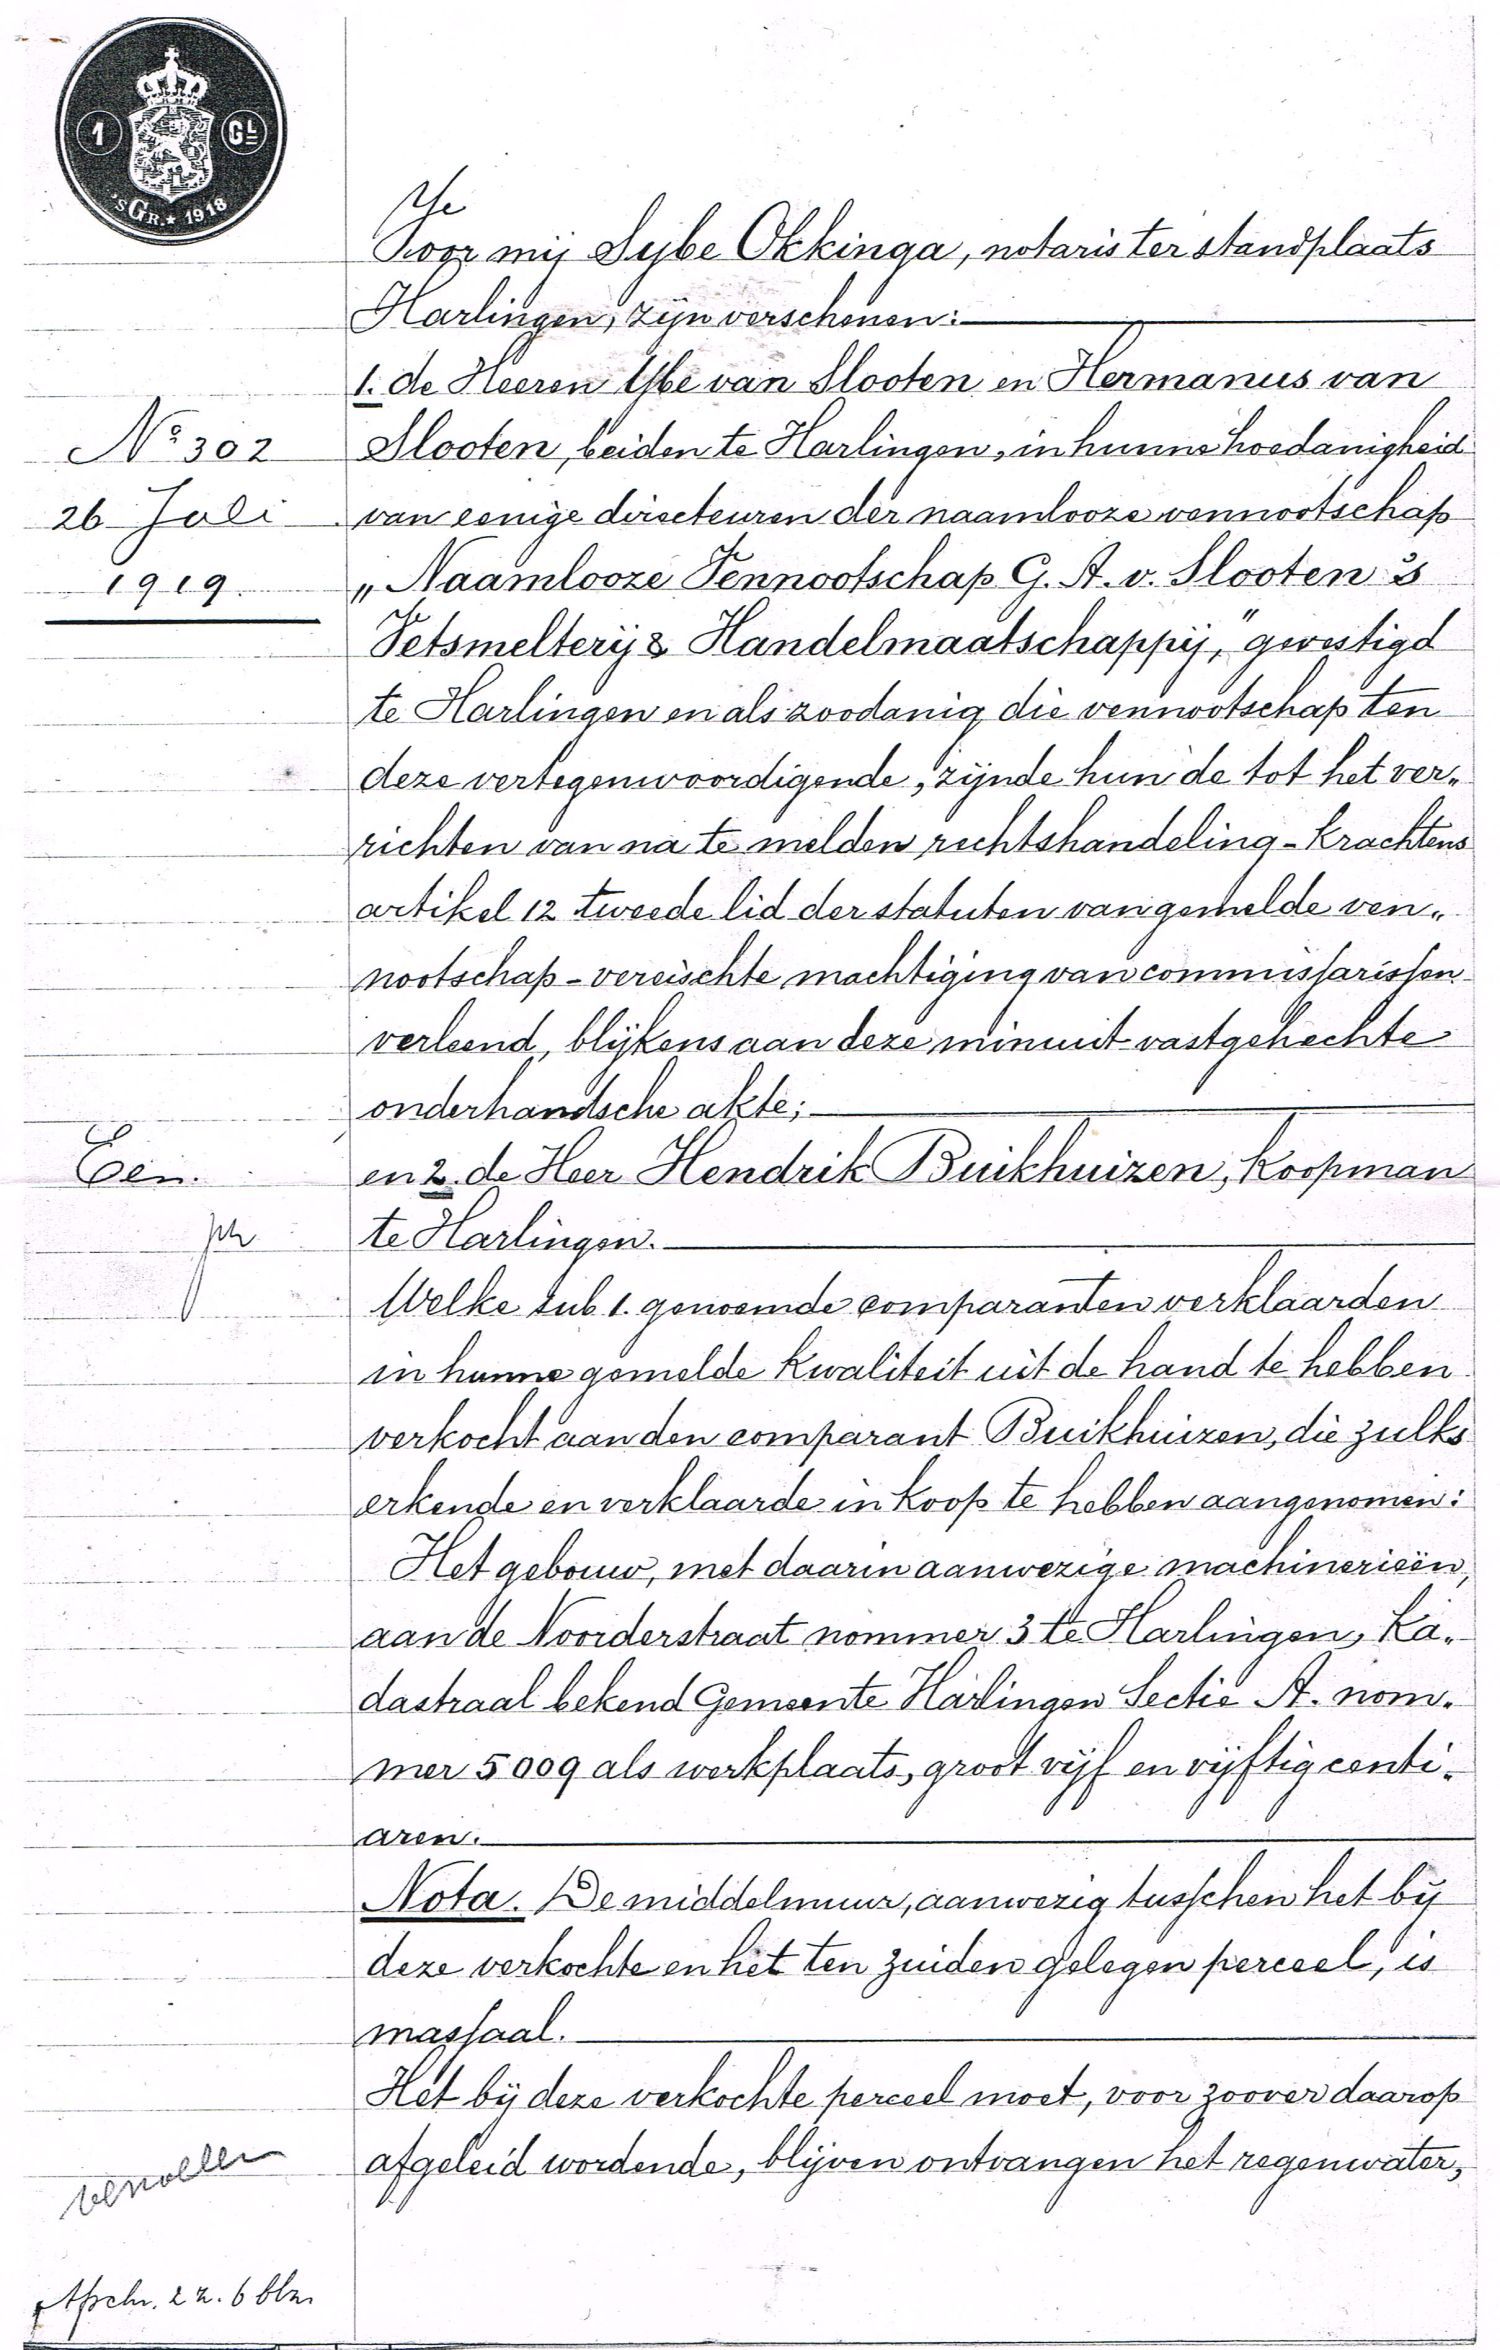 1 GL
'sGR.★1918
Voor mij Sijbe Okkinga, notaris ter standplaats
Harlingen, zijn verschenen:
1. de Heeren IJbe van Slooten en Hermanus van
Slooten, beiden te Harlingen, in hunne hoedanigheid
van eenige directeuren der naamlooze vennootschap
"Naamlooze Vennootschap G. A. v. Slooten's
Vetsmelterij & Handelmaatschappij," gevestigd
te Harlingen en als zoodanig die vennootschap ten
deze vertegenwoordigende, zijnde hun de tot het ver"
richten van na te melden rechtshandeling - krachtens
artikel 12 tweede lid der statuten van gemelde ven"
nootschap - vereischte machtiging van commissarissen
verleend, blijkens aan deze minuut vastgehechte
onderhandsche akte;
en 2. de Heer Hendrik Buikhuizen, koopman
te Harlingen.
Welke sub 1. genoemde comparanten verklaarden
in hunne gemelde kwaliteit uit de hand te hebben
verkocht aan den comparant Buikhuizen, die zulks
erkende en verklaarde in koop te hebben aangenomen:
Het gebouw, met daarin aanwezige machinerieën,
aan de Noorderstraat nommer 3 te Harlingen, ka"
dastraal bekend Gemeente Harlingen Sectie A. nom"
mer 5009 als werkplaats, groot vijf en vijftig centi"
aren.
Nota. De middelmuur, aanwezig tusschen het bij
deze verkochte en het ten zuiden gelegen perceel, is
massaal.
Het bij deze verkochte perceel moet, voor zoover daarop
afgeleid wordende, blijven ontvangen het regenwater,
No 302
26 Juli
1919.
Een.
Afschr. 2 z. 6 blz.